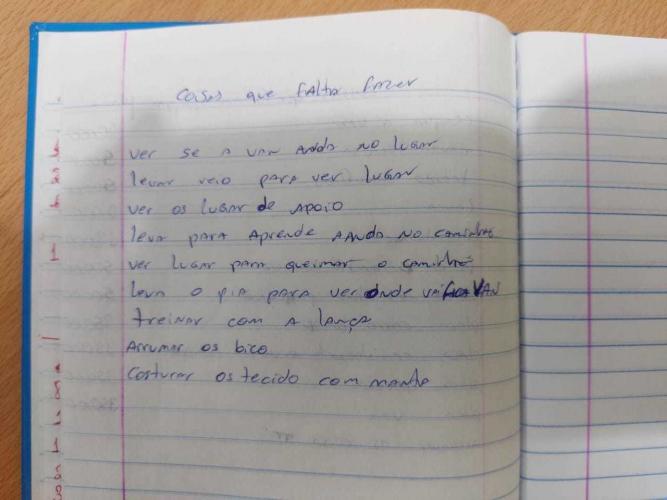 Coisas que falta fazer
ver se a van anda no lugar
levar veio para ver lugar
ver os lugar de apoio
leva para aprende aando no caminhão
ver lugar para queimar o caminhão
leva o pia para ver onde vai fica van
treinar com a lança
Arrumar os bico
Costurar os tecido com manta